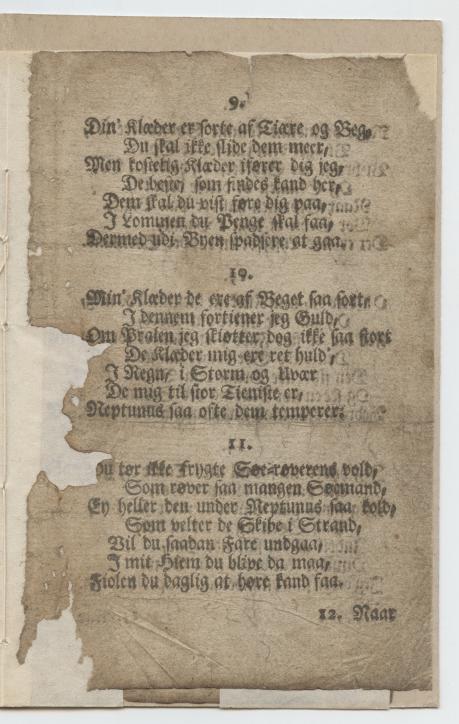 9.
Din' Klæder er sorte af Tiære og Beg,
Du skal ikke slide dem meer,
Men kostelig Klæder ifører dig jeg,
De beste som findes kand her,
Dem skal du vist føre dig paa,
I Lommen du Penge skal faa,
Dermed udi Byen spadsere at gaa.
10.
Min' Klæder de ere af Beget saa sort,
I dennem fortiener jeg Guld,
Om Pralen jeg skiøtter dog ikke saa stort
De Klæder mig ere ret huld',
I Regn, i Storm og Uvær
De mig til stor Tieniste er,
Neptunus saa ofte dem temperer.
11.
Du tør ikke frygte Søe-røverens vold,
Som røver saa mangen Søemand,
Ey heller den under Neptunus saa kold,
Som velter de Skibe i Strand,
Vil du saadan Fare undgaa,
I mit Hiem du blive da maa,
Fiolen du daglig at høre kand faa.
12. Naar